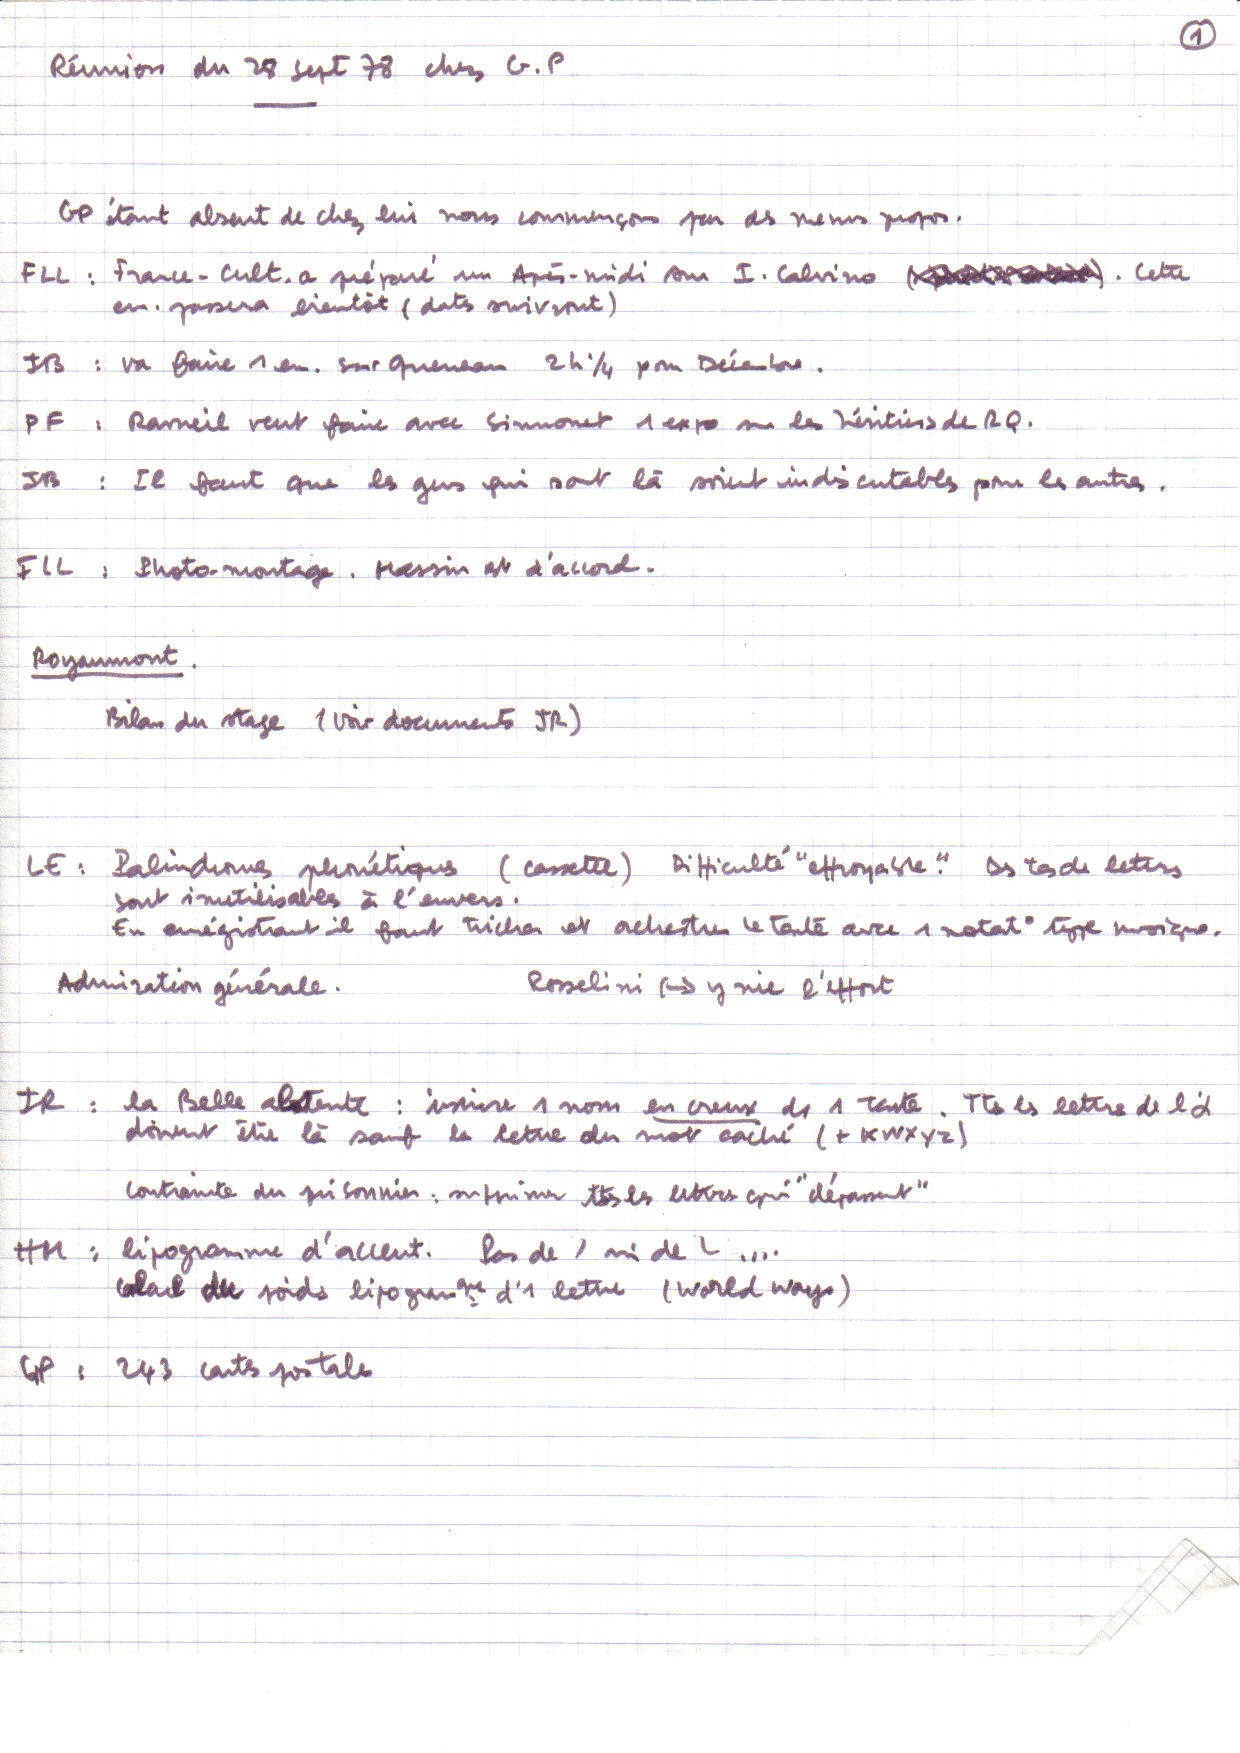 ①
Réunion du 28 sept 78 chez G.P
GP étant absent de chez lui nous commençons par des menus propos.
FLL : France-Cult. a préparé un Après-midi sur I. Calvino. Cette
em. passera bientôt (dates suivront)
JB : va faire 1 em. sur Queneau 2h 1/4 pour Décembre.
PF : Rameil veut faire avec Simonnet 1 expo sur les héritiers de RQ.
JB : Il faut que les gens qui sont là soient indiscutables pour les autres.
FLL : Photo-montage. Massin est d'accord.
Royaumont.
Bilan du stage (voir documents JR)
LE : Palindromes phonétiques (cassette) Difficulté "effroyable". Des tas de lettres
sont inutilisables à l'envers.
En enregistrant il faut tricher et orchestrer le texte avec 1 notat° type musique.
Admiration générale. Rosselini y nie l'effort
JR : la Belle absente : inscrire 1 nom en creux ds 1 texte. Ttes les lettres de l'α
doivent être là sauf la lettre du mot caché (+ KWXYZ)
Contrainte du prisonnier : supprimer ttes les lettres qui "dépassent"
HM : lipogramme d'accent. Pas de / ni de \ ....
calcul du poids lipogramque d'1 lettre (World Ways)
GP : 243 cartes postales